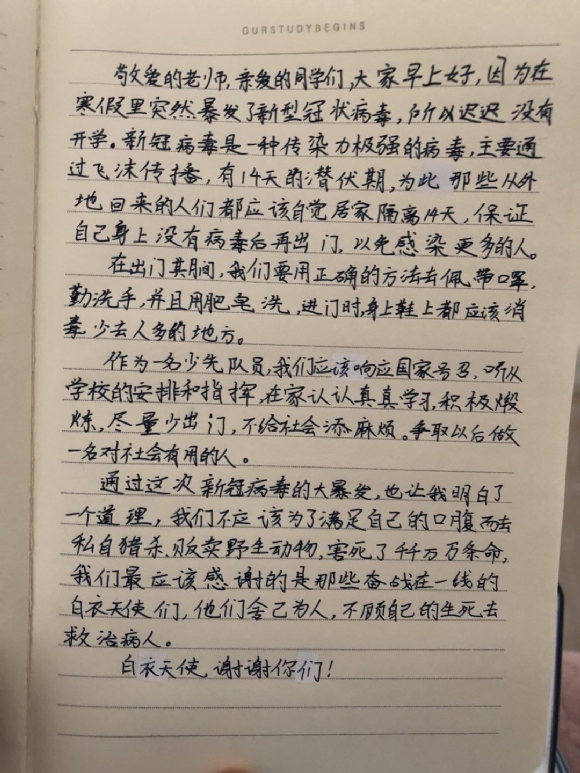 OURSTUDYBEGINS
敬爱的老师,亲爱的同学们,大家早上好,因为在
寒假里突然暴发了新型冠状病毒,所以迟迟没有
开学。新冠病毒是一种传染力极强的病毒,主要通
过飞沫传播,有14天的潜伏期,为此那些从外
地回来的人们都应该自觉居家隔离14天,保证
自己身上没有病毒后再出门,以免感染更多的人。
在出门其间,我们要用正确的方法去佩带口罩,
勤洗手,并且用肥皂洗,进门时,身上鞋上都应该消
毒,少去人多的地方。
作为一名少先队员,我们应该响应国家号召,听从
学校的安排和指挥,在家认认真真学习,积极煅
炼,尽量少出门,不给社会添麻烦。争取以后做
一名对社会有用的人。
通过这次新冠病毒的大暴发,也让我明白了
一个道理,我们不应该为了满足自己的口腹而去
私自猎杀、贩卖野生动物,害死了千千万万条命,
我们最应该感谢的是那些奋战在一线的
白衣天使们,他们舍己为人,不顾自己的生死去
救治病人。
白衣天使,谢谢你们!